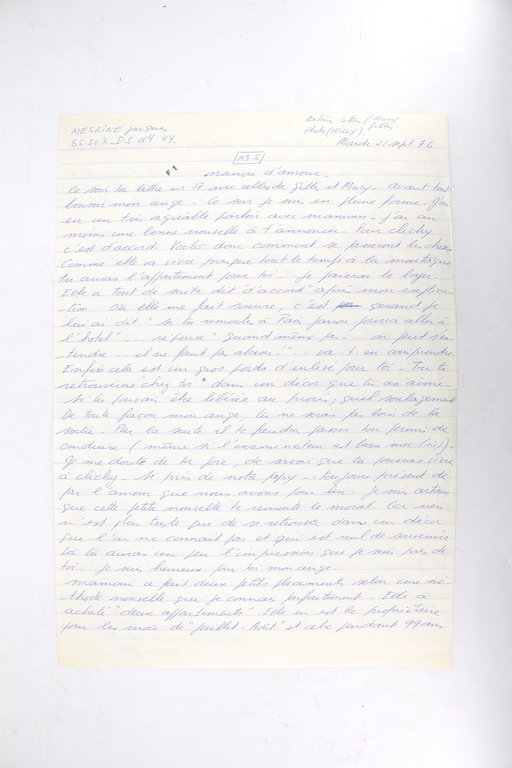 MESRINE Jacques
Retour lettre (Mary
Gilles
55.503 - D5 d4 44
Photo (WILLY)
Mardi 21 sept 76
N° 5
Mamour d'amour.
Ce soir ta lettre n° 17 avec celles de Gilles et Mary. avant tout
bonsoir mon ange. Ce soir je suis en pleine forme. J'ai
eu un très agréable parloir avec maman. J'ai au
moins une bonne nouvelle à t'annoncer. Pour Clichy
c'est d'accord. Voilà donc comment se passeront les choses
Comme elle va vivre presque tout le temps à la montagne
tu auras l'appartement pour toi... je paierai le loyer.
Elle a tout de suite dit "d'accord" après mon explica-
tion. Où elle me fait sourire, c'est quand je
lui ai dit "si tu remontes à Paris Janou pourra aller à
l'hotel".... réponse "quand même pas.... on peut s'en-
tendre... il ne faut pas abuser!"... va t-en comprendre.
Enfin cela est un gros poids d'enlevé pour toi. Tu te
retrouveras "chez toi" dans un décor que tu as aimé.
Si tu pouvais être libérée au procès, quel soulagement
De toute façon mon ange, tu ne serais pas loin de la
sortie. Par la suite il te faudra passer ton permis de
conduire (même si l'examinateur est beau mec (oui)).
Je me doute de ta joie, de savoir que tu pourrais vivre
à Clichy. Si près de notre papy... toujours présent de
par l'amour que nous avons pour lui. Je suis certain
que cette petite nouvelle te remonte le moral. Car rien
n'est plus triste que de se retrouver dans un décor
que l'on ne connait pas et qui est nul de souvenirs
là tu auras un peu l'impression que je suis près de
toi. Je suis heureux pour toi mon ange.
maman a fait deux petits placements selon une mé-
thode nouvelle que je connais parfaitement. Elle a
acheté "deux appartements". Elle en est la propriétaire
pour les mois de "Juillet-Août" et cela pendant 99 ans